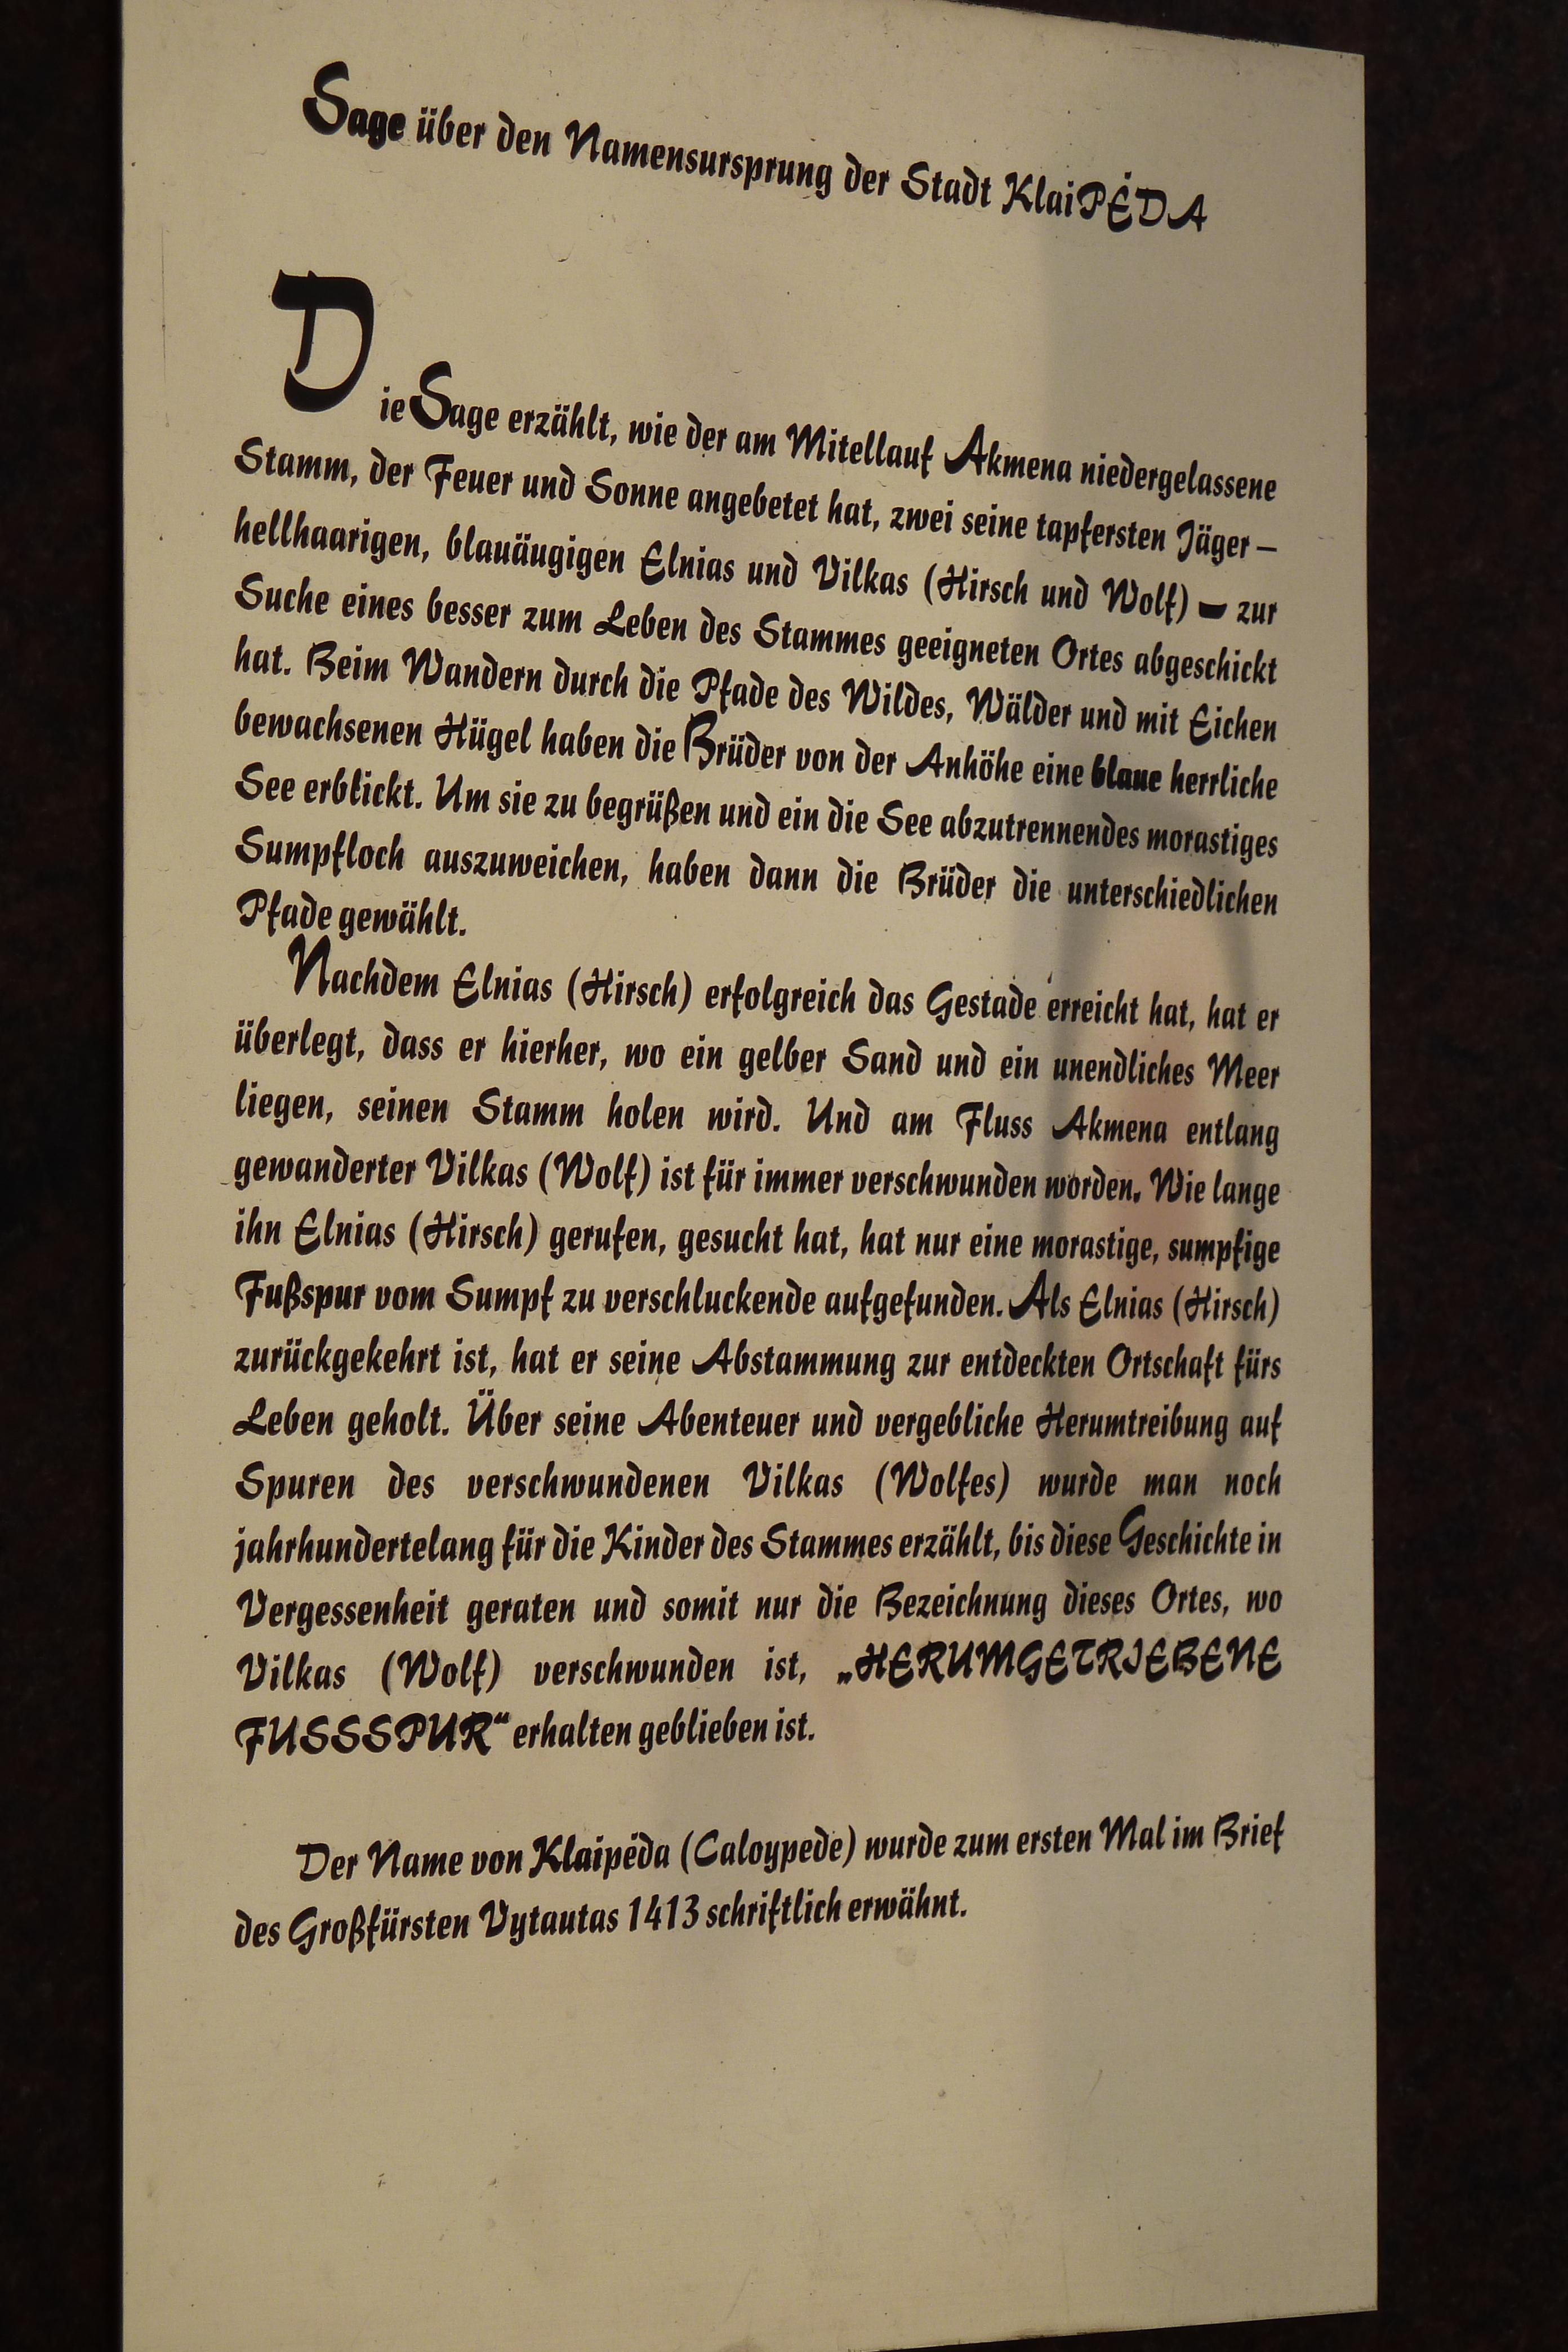 Sage über den Namensursprung der Stadt KlaiPĖDA
Die Sage erzählt, wie der am Mitellauf Akmena niedergelassene
Stamm, der Feuer und Sonne angebetet hat, zwei seine tapfersten Jäger –
hellhaarigen, blauäugigen Elnias und Vilkas (Hirsch und Wolf) – zur
Suche eines besser zum Leben des Stammes geeigneten Ortes abgeschickt
hat. Beim Wandern durch die Pfade des Wildes, Wälder und mit Eichen
bewachsenen Hügel haben die Brüder von der Anhöhe eine blaue herrliche
See erblickt. Um sie zu begrüßen und ein die See abzutrennendes morastiges
Sumpfloch auszuweichen, haben dann die Brüder die unterschiedlichen
Pfade gewählt.
Nachdem Elnias (Hirsch) erfolgreich das Gestade erreicht hat, hat er
überlegt, dass er hierher, wo ein gelber Sand und ein unendliches Meer
liegen, seinen Stamm holen wird. Und am Fluss Akmena entlang
gewanderter Vilkas (Wolf) ist für immer verschwunden worden. Wie lange
ihn Elnias (Hirsch) gerufen, gesucht hat, hat nur eine morastige, sumpfige
Fußspur vom Sumpf zu verschluckende aufgefunden. Als Elnias (Hirsch)
zurückgekehrt ist, hat er seine Abstammung zur entdeckten Ortschaft fürs
Leben geholt. Über seine Abenteuer und vergebliche Herumtreibung auf
Spuren des verschwundenen Vilkas (Wolfes) wurde man noch
jahrhundertelang für die Kinder des Stammes erzählt, bis diese Geschichte in
Vergessenheit geraten und somit nur die Bezeichnung dieses Ortes, wo
Vilkas (Wolf) verschwunden ist, „HERUMGETRIEBENE
FUSSSPUR“ erhalten geblieben ist.
Der Name von Klaipėda (Caloypede) wurde zum ersten Mal im Brief
des Großfürsten Vytautas 1413 schriftlich erwähnt.